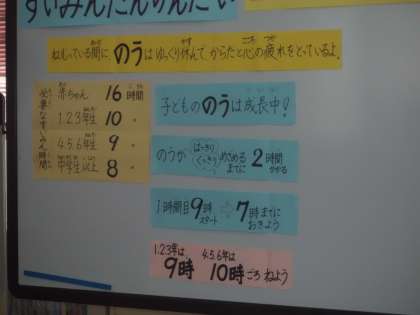 すいみんたんけんたい
ねむっている間に、のうはゆっくり休んで、からだと心の疲れをとっているよ。
必要なすいみん時間
赤ちゃん 16時間
1.2.3年生 10 〃
4.5.6年生 9 〃
中学生以上 8 〃
子どものうは成長中!
のうが はっきり くっきり めざめるまでに 2時間かかる
1時間目9時スタート 7時までにおきよう
1.2.3年は 9時 4.5.6年は 10時ごろねよう